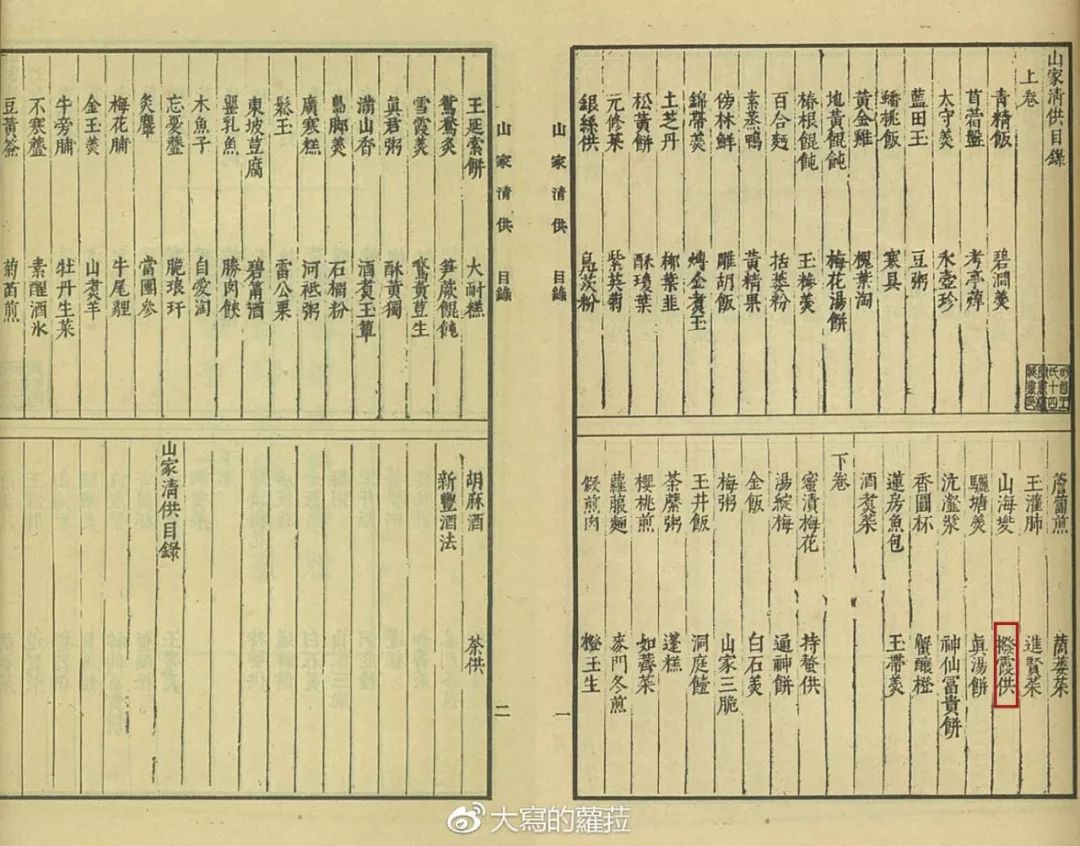 山家清供目錄
上卷
青精飯 碧澗羹
苜蓿盤 考亭蔊
太守羹 冰壺珍
藍田玉 豆粥
蟠桃飯 寒具
黃金雞 槐葉淘
地黃餛飩 梅花湯餅
椿根餛飩 玉糝羹
百合麵 栝蔞粉
素蒸鴨 黃精果
傍林鮮 雕胡飯
錦帶羹 煿金煮玉
土芝丹 柳葉韭
松黃餅 酥瓊葉
元修菜 紫英菊
銀絲供 鳧茨粉
簷蔔煎 蒿蔞菜
玉灌肺 進賢菜
山海兜 撥霞供
驪塘羹 真湯餅
沆瀣漿 神仙富貴餅
香圓杯 蟹釀橙
蓮房魚包 玉帶羹
酒煮菜
下卷
蜜漬梅花 持螯供
湯綻梅 通神餅
金飯 白石羹
梅粥 山家三脆
玉井飯 洞庭饐
荼蘼粥 蓬糕
櫻桃煎 如薺菜
蘿菔麵 麥門冬煎
假煎肉 橙玉生
山家清供 目錄 一
山家清供 目錄 二
王延索餅 大耐糕
鴛鴦炙 筍蕨餛飩
雪霞羹 鵞黃荳生
真君粥 酥黃獨
滿山香 酒煮玉蕈
脚羹 石榴粉
廣寒糕 河祗粥
鬆玉 雷公栗
東坡荳腐 碧筩酒
罌乳魚 勝肉䬪
木魚子 自愛淘
忘憂虀 脆琅玕
炙麞 當團參
梅花脯 牛尾貍
金玉羹 山煮羊
牛旁脯 牡丹生菜
不寒虀 素醒酒冰
豆黃簽 菊苗煎
胡麻酒 茶供
新豐酒法
山家清供目錄
大寫的蘿菈